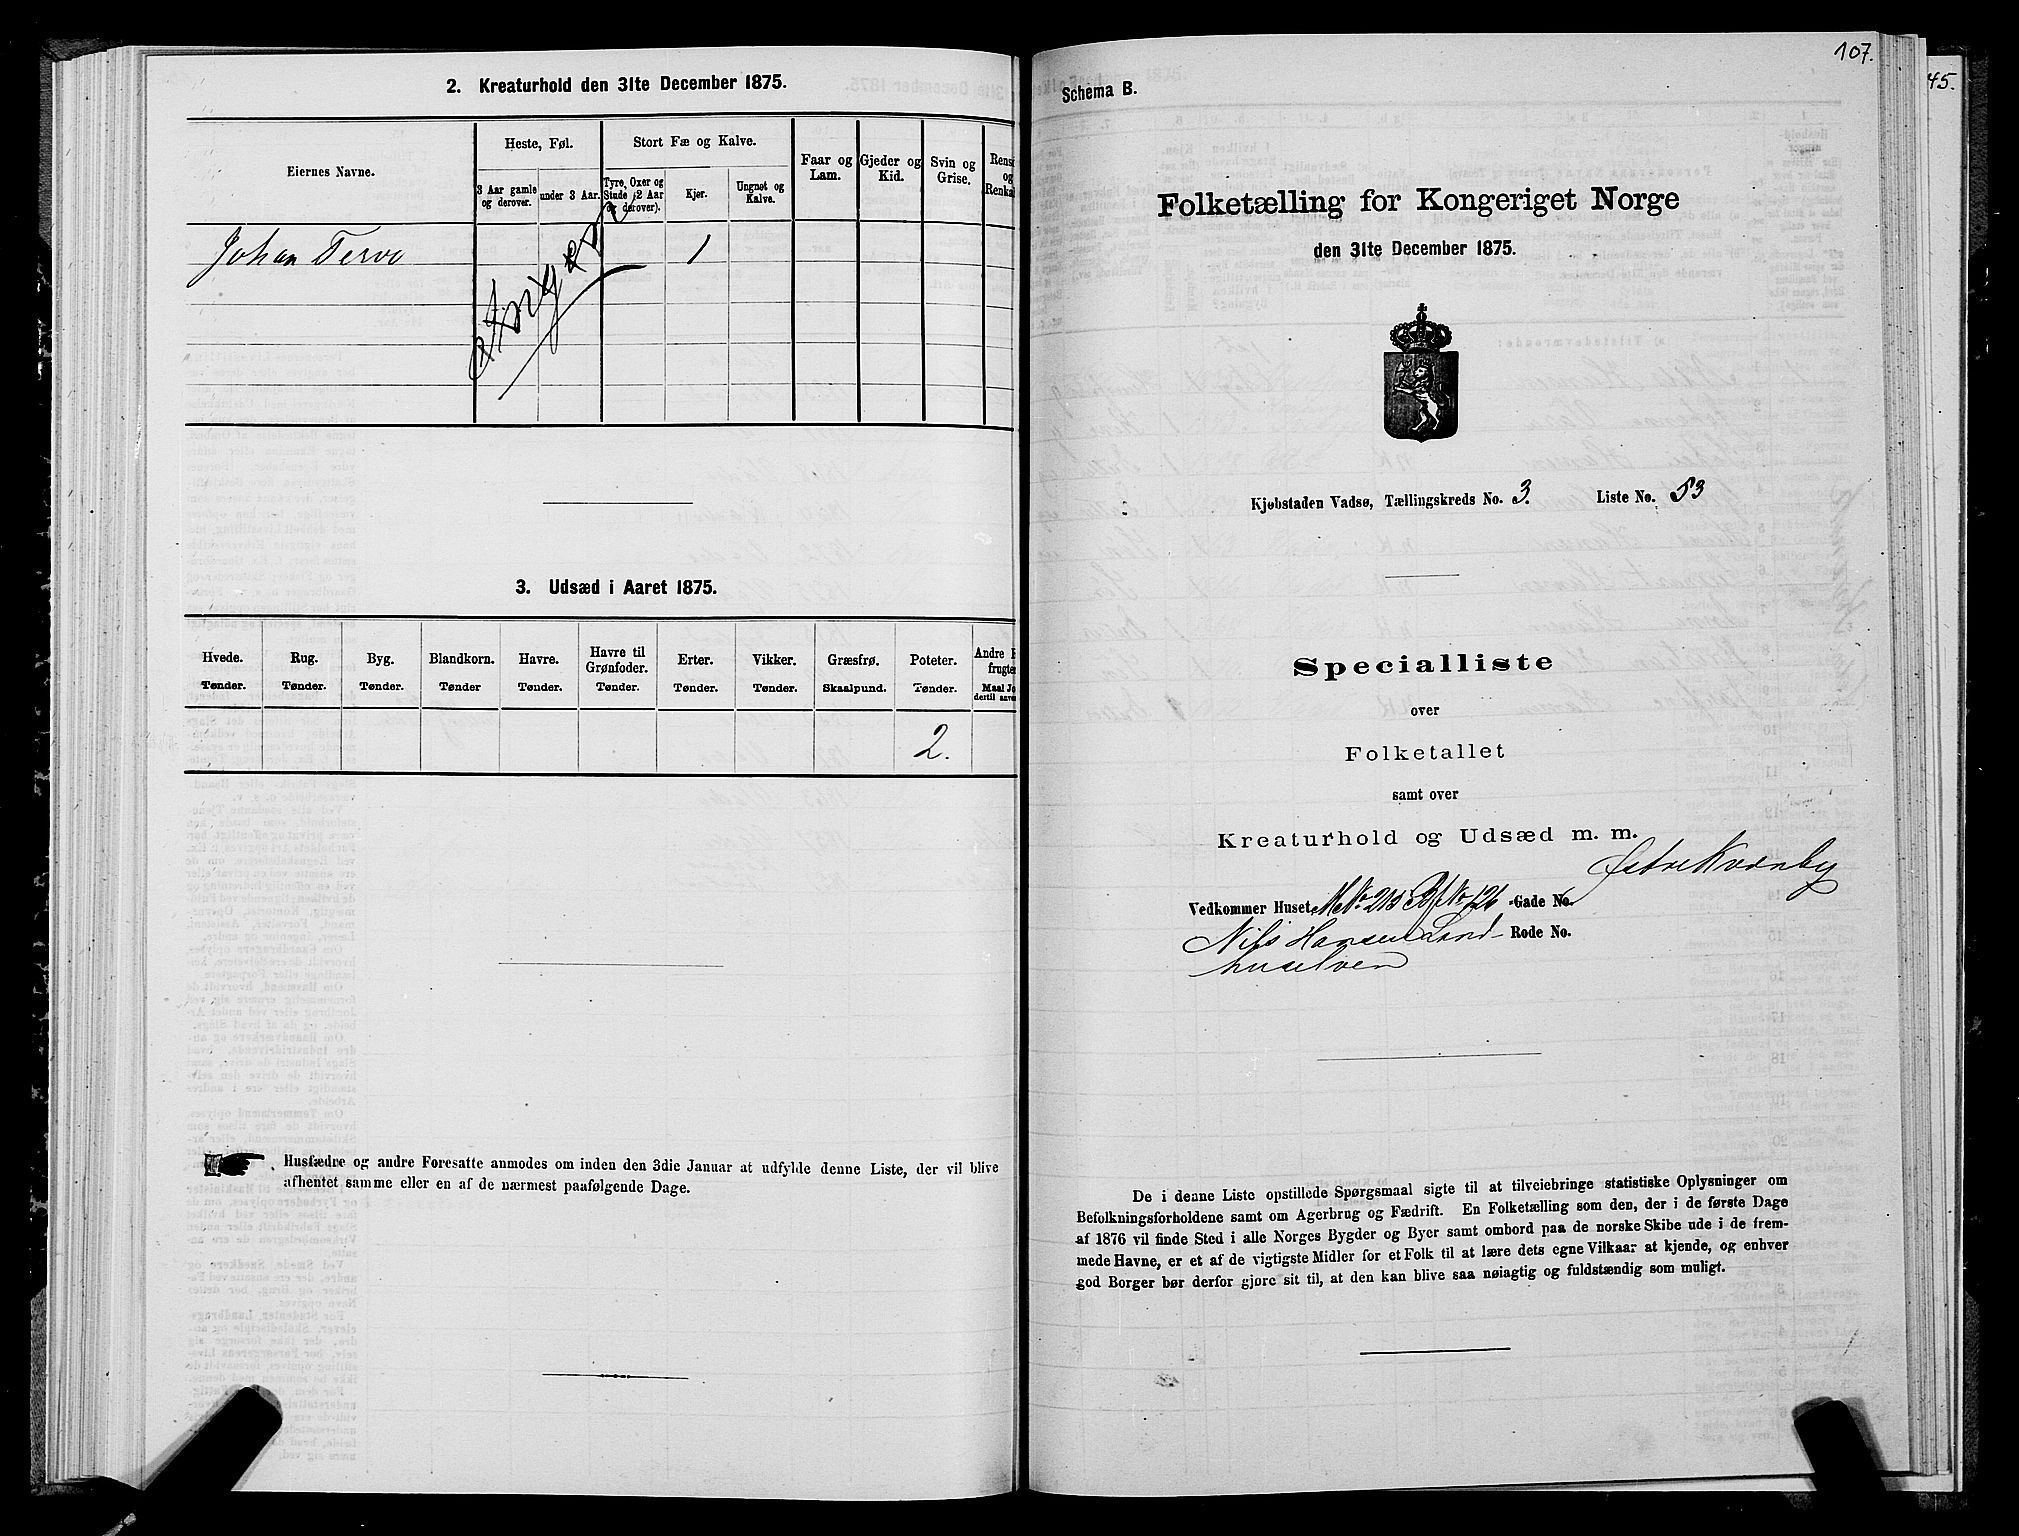 2. Kreaturhold den 31te December 1875.
Eiernes Navne.
Heste, Føl.
3 Aar gamle og derover.
under 3 Aar.
Stort Fæ og Kalve.
Tyre, Oxer og Stude (2 Aar og derover).
Kjør.
Ungnøt og Kalve.
Faar og Lam.
Gjeder og Kid.
Svin og Grise.
Rensd
og
Renkal
Johan Tervo 1
3. Udsæd i Aaret 1875.
Hvede. Rug. Byg. Blandkorn. Havre. Havre til Grønfoder. Erter. Vikker. Græsfrø. Poteter. Andre
frugter
Tønder. Tønder. Tønder. Tønder Tønder. Tønder. Tønder. Tønder. Skaalpund. Tønder. Maal Jo
dertil anven
2.
Husfædre og andre Foresatte anmodes om inden den 3die Januar at udfylde denne Liste, der vil blive
afhentet samme eller en af de nærmest paafølgende Dage.
107.
45.
Schema B.
Folketælling for Kongeriget Norge
den 31te December 1875.
Kjøbstaden Vadsø, Tællingskreds No. 3. Liste No. 53
Specialliste
over
Folketallet
samt over
Kreaturhold og Udsæd m. m.
Østre Kvænby
Vedkommer Huset, MNo 213 BfNo 126 -Gade No.
Nils Hansen Land- Rode No.
De i denne Liste opstillede Spørgsmaal sigte til at tilveiebringe statistiske Oplysninger om
Befolkningsforholdene samt om Agerbrug og Fædrift. En Folketælling som den, der i de første Dage
af 1876 vil finde Sted i alle Norges Bygder og Byer samt ombord paa de norske Skibe ude i de frem-
mede Havne, er et af de vigtigste Midler for et Folk til at lære dets egne Vilkaar at kjende, og enhver
god Borger bør derfor gjøre sit til, at den kan blive saa nøiagtig og fuldstændig som muligt.